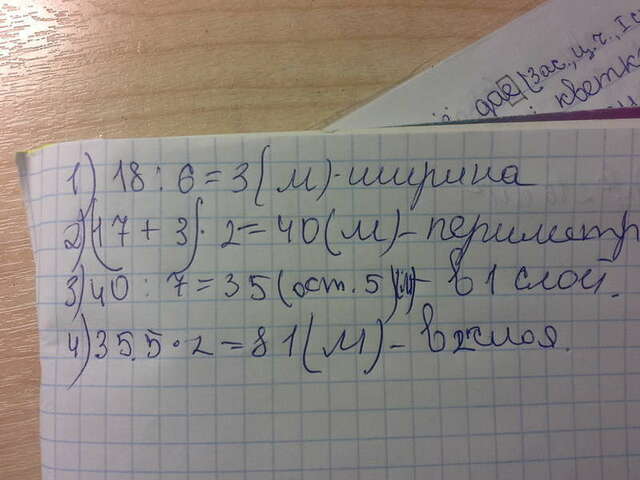 арэ (Зас., Ц.ч., I с
кветк
1) 18 : 6 = 3 (м) - ширина
2) (17 + 3) · 2 = 40 (м) - периметр
3) 40 : 7 = 35 (ост. 5) (м) - в 1 слой.
4) 35.5 · 2 = 81 (м) - в 2 слоя.